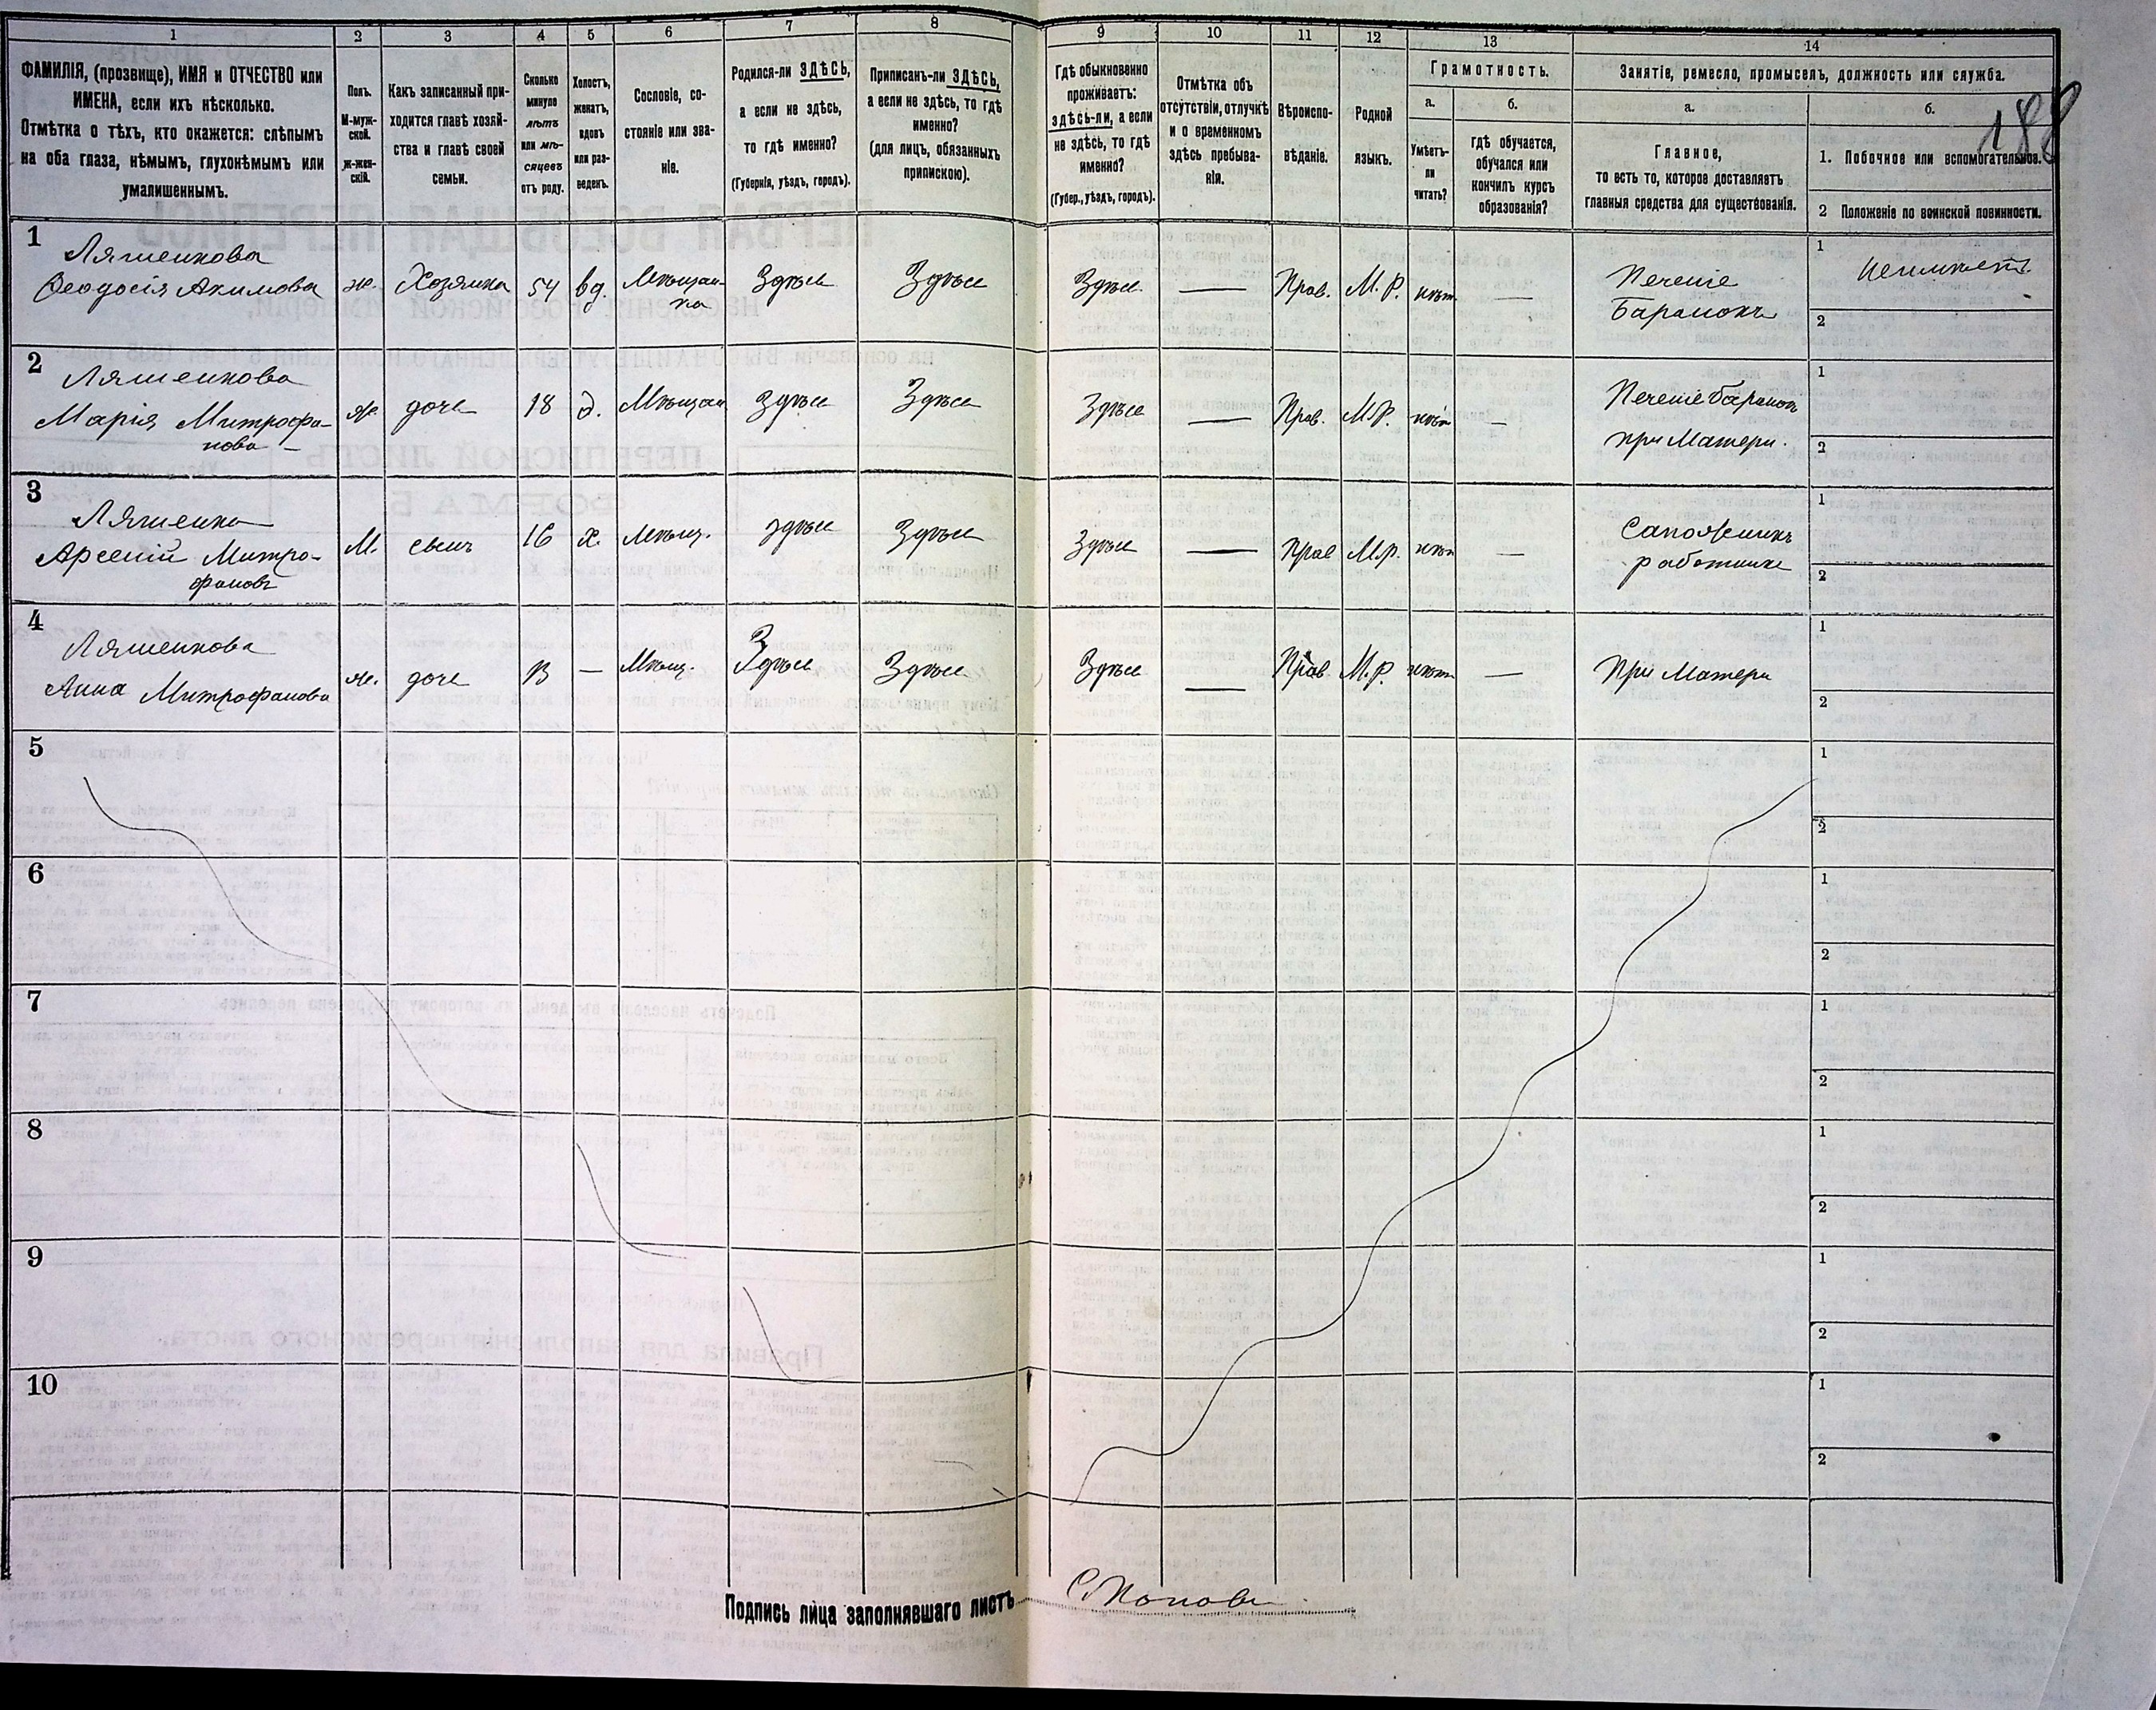 1 2 3 4 5 6 7 8 9 10 11 12 13 14
ФАМИЛІЯ, (прозвище), ИМЯ и ОТЧЕСТВО или
ИМЕНА, если ихъ нѣсколько.
Отмѣтка о тѣхъ, кто окажется: слѣпымъ
на оба глаза, нѣмымъ, глухонѣмымъ или
умалишеннымъ.
Полъ.
М-муж-
ской.
ж-жен-
скій.
Какъ записанный при-
ходится главѣ хозяй-
ства и главѣ своей
семьи.
Сколько
минуло
лѣтъ
или мѣ-
сяцевъ
отъ роду.
Холостъ,
женатъ,
вдовъ
или раз-
веденъ.
Сословіе, со-
стояніе или зва-
ніе.
Родился-ли ЗДѢСЬ,
а если не здѣсь,
то гдѣ именно?
(Губернія, уѣздъ, городъ).
Приписанъ-ли ЗДѢСЬ,
а если не здѣсь, то гдѣ
именно?
(для лицъ, обязанныхъ
припискою).
Гдѣ обыкновенно
проживаетъ:
здѣсь-ли, а если
не здѣсь, то гдѣ
именно?
(Губер., уѣздъ, городъ).
Отмѣтка объ
отсутствіи, отлучкѣ
и о временномъ
здѣсь пребыва-
ніи.
Вѣроиспо-
вѣданіе.
Родной
языкъ.
Грамотность.
а.
Умѣетъ-
ли
читать?
б.
гдѣ обучается,
обучался или
кончилъ курсъ
образованія?
Занятіе, ремесло, промыселъ, должность или служба.
а.
Главное,
то есть то, которое доставляетъ
главныя средства для существованія.
б.
188
1. Побочное или вспомогательное.
2 Положеніе по воинской повинности.
1
Ляшенкова
Феодосія Акимова
ж. Хозяйка 54 вд. Мѣщан-
ка
Здѣсь Здѣсь Здѣсь — Прав. М. Р. нѣт —
Печеніе
Баранокъ
1
2
2
Ляшенкова
Марія Митрофа-
нова —
ж. дочь 18 д. Мѣщан Здѣсь Здѣсь Здѣсь — Прав. М.Р. нѣт —
Печеніе баранок
при Матери.
1
2
3
Ляшенко
Арсеній Митро-
фановъ
М. сынъ 16 х. Мѣщ. Здѣсь Здѣсь Здѣсь — Прав М.р. нѣт —
Сапожникъ
работникъ
1
2
4
Ляшенкова
Анна Митрофанова
ж. дочь 13 — Мѣщ. Здѣсь Здѣсь Здѣсь — Прав М.Р. нѣт —
При Матери
1
2
5
1
2
6
1
2
7
1
2
8
1
2
9
1
2
10
1
2
Подпись лица заполнявшаго листъ С. Попов